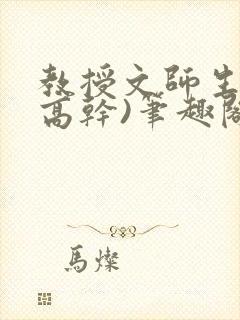 教授文師生
高幹)筆趣閣
馬燦